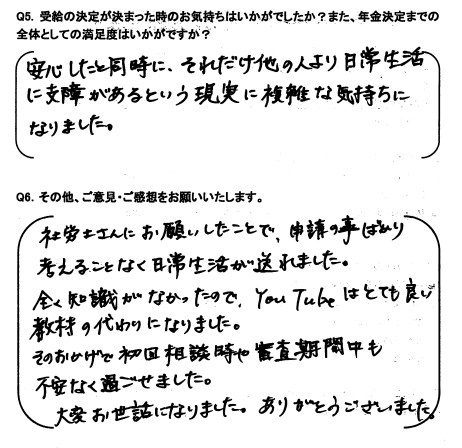 Q5. 受給の決定が決まった時のお気持ちはいかがでしたか？また、年金決定までの
全体としての満足度はいかがですか？
安心したと同時に、それだけ他の人より日常生活
に支障があるという現実に複雑な気持ちに
なりました。
Q6. その他、ご意見・ご感想をお願いいたします。
社労士さんにお願いしたことで、申請の事ばかり
考えることなく日常生活が送れました。
全く知識がなかったので、YouTubeはとても良い
教材の代わりになりました。
そのおかげで初回相談時や審査期間中も
不安なく過ごせました。
大変お世話になりました。ありがとうございました。